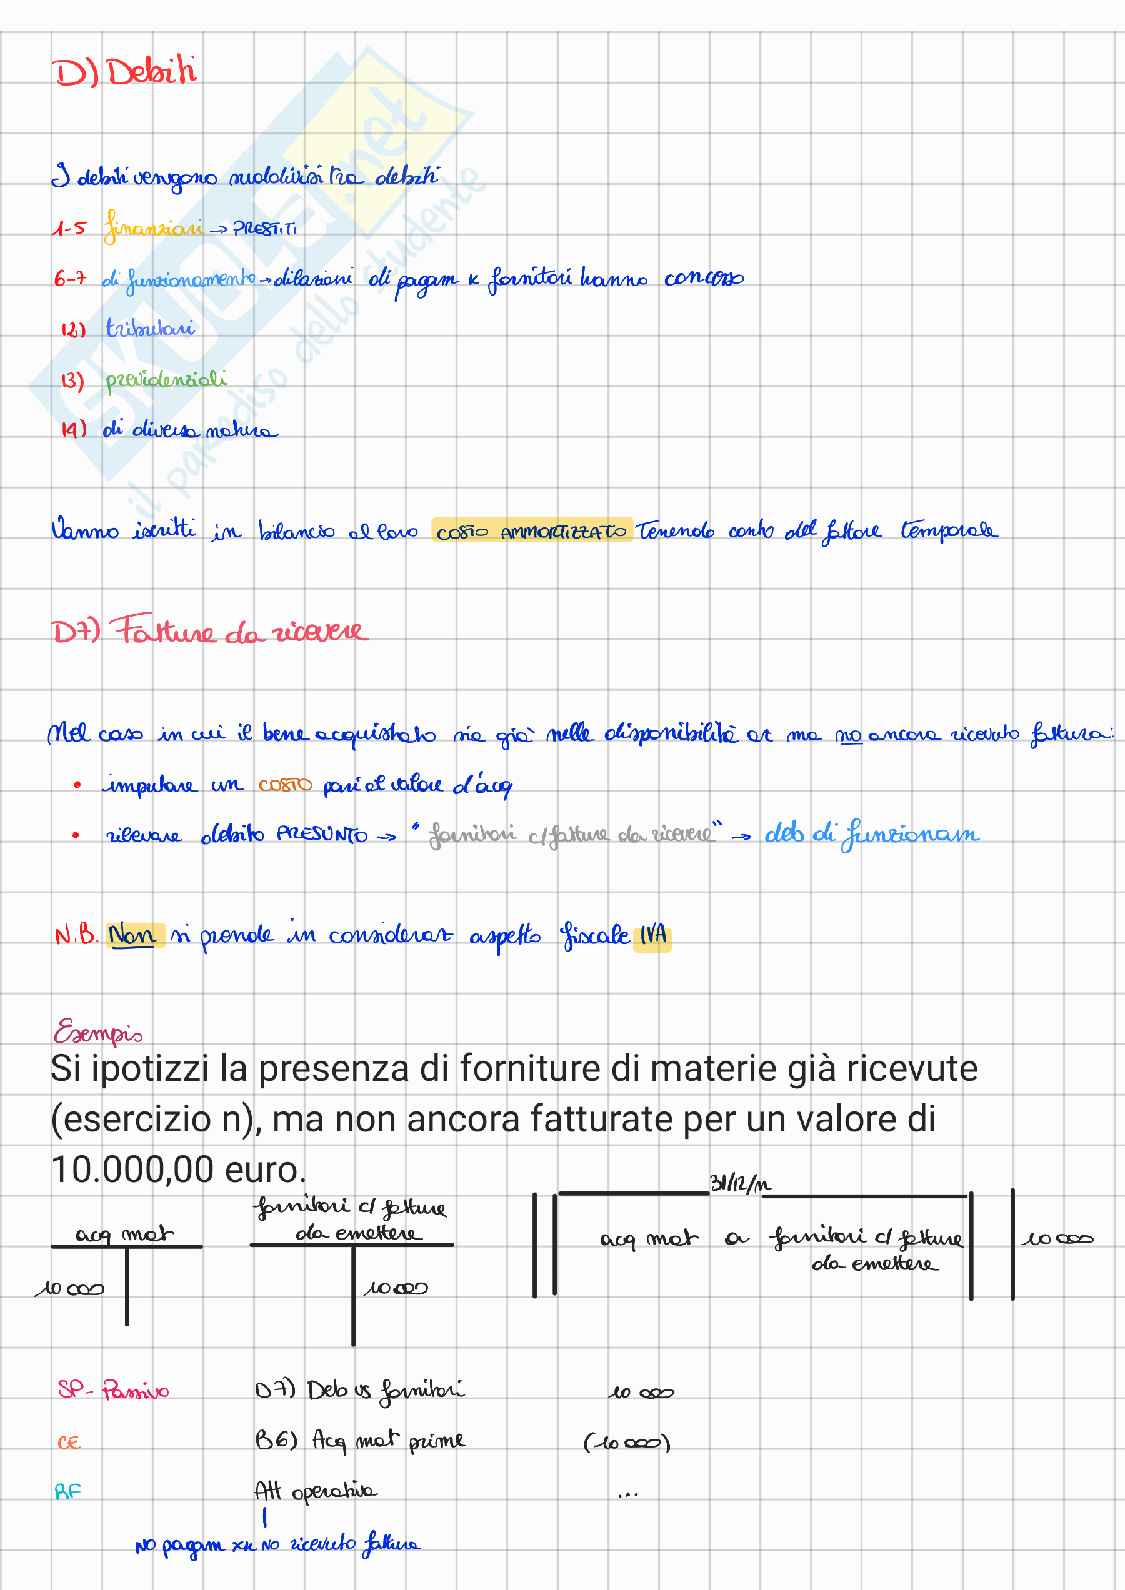 D) Debiti
I debiti vengono suddivisi tra debiti
1-5 finanziari → PRESTITI
6-7 di funzionamento → dilazioni di pagam x fornitori hanno concesso
12) tributari
13) previdenziali
14) di diversa natura
Vanno iscritti in bilancio al loro COSTO AMMORTIZZATO Tenendo conto del fattore temporale
D7) Fatture da ricevere
Nel caso in cui il bene acquistato sia già nelle disponibilità az ma no ancora ricevuto fattura:
• imputare un COSTO pari al valore d'acq
• rilevare debito PRESUNTO → "fornitori c/fatture da ricevere" → deb di funzionam
N.B. Non si prende in consideraz aspetto fiscale IVA
Esempio
Si ipotizzi la presenza di forniture di materie già ricevute
(esercizio n), ma non ancora fatturate per un valore di
10.000,00 euro.
31/12/n
acq mat
fornitori c/ fatture
da emettere
acq mat a fornitori c/ fatture
da emettere
10 000
10 000
10 000
SP- Passivo D7) Deb vs fornitori 10 000
CE B6) Acq mat prime (10 000)
RF Att operativa ...
NO pagam xk NO ricevuto fattura
SKUOLA.net
il paradiso dello studente